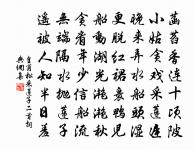 菡萏香連十頃陂
小姑貪戲採蓮遲
晚來弄水船頭濕
更脫紅裙裹鴨兒
船動湖光灩灩秋
貪看年少信船流
無端隔水拋蓮子
遙被人知半日羞
皇甫松采蓮子二首詞